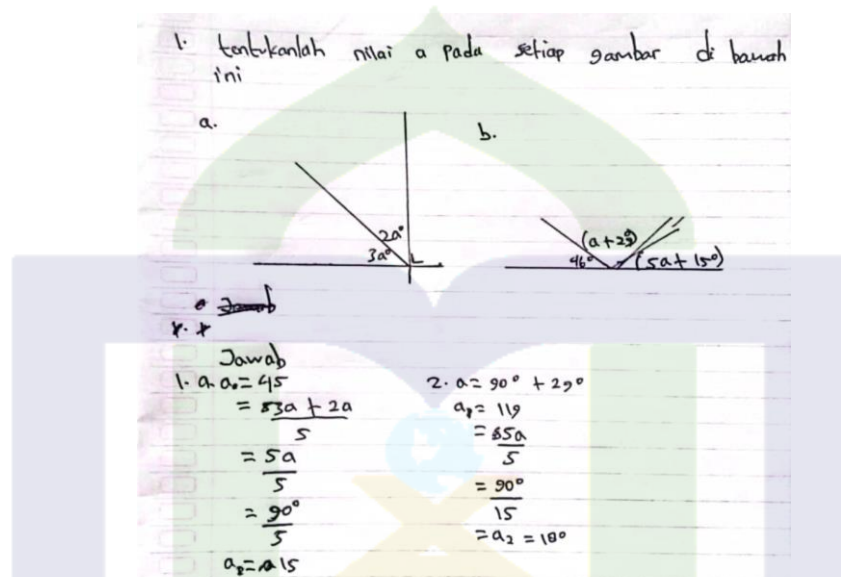 1. tentukanlah nilai a pada setiap gambar di bawah
ini
a.
b.
2a°
3a°
(a+29°)
46°
(5a+15°)
Jawab
Jawab
1. a a₀ = 45
= 3a + 2a
5
= 5a
5
= 90°
5
= a 15
2. a = 90° + 29°
= 119
= 5a
5
= 90°
15
= a₂ = 180